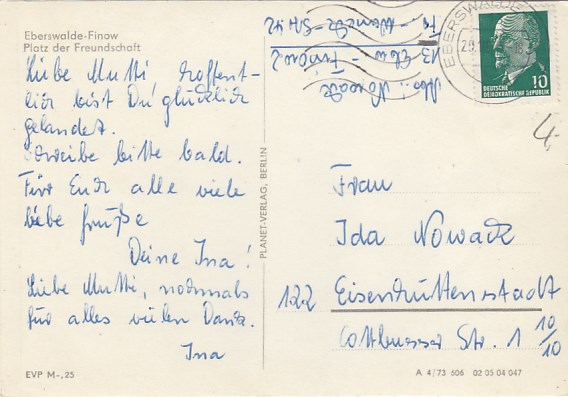 Eberswalde-Finow
Platz der Freundschaft
Liebe Mutti, hoffent-
lich bist Du glücklich
gelandet.
Schreibe bitte bald.
Für Euch alle viele
liebe Grüße
Deine Ina!
Liebe Mutti, nochmals
für alles vielen Dank.
Ina
EVP M-,25
PLANET-VERLAG, BERLIN
Abs.: Nowack
13 Ebw.-Finow 2
EBERSWALDE
DEUTSCHE
DEMOKRATISCHE REPUBLIK
10
4,-
Frau
Ida Nowack
122 Eisenhüttenstadt
Cottbusser Str. 1 10/10
A 4/73 606 02 05 04 047